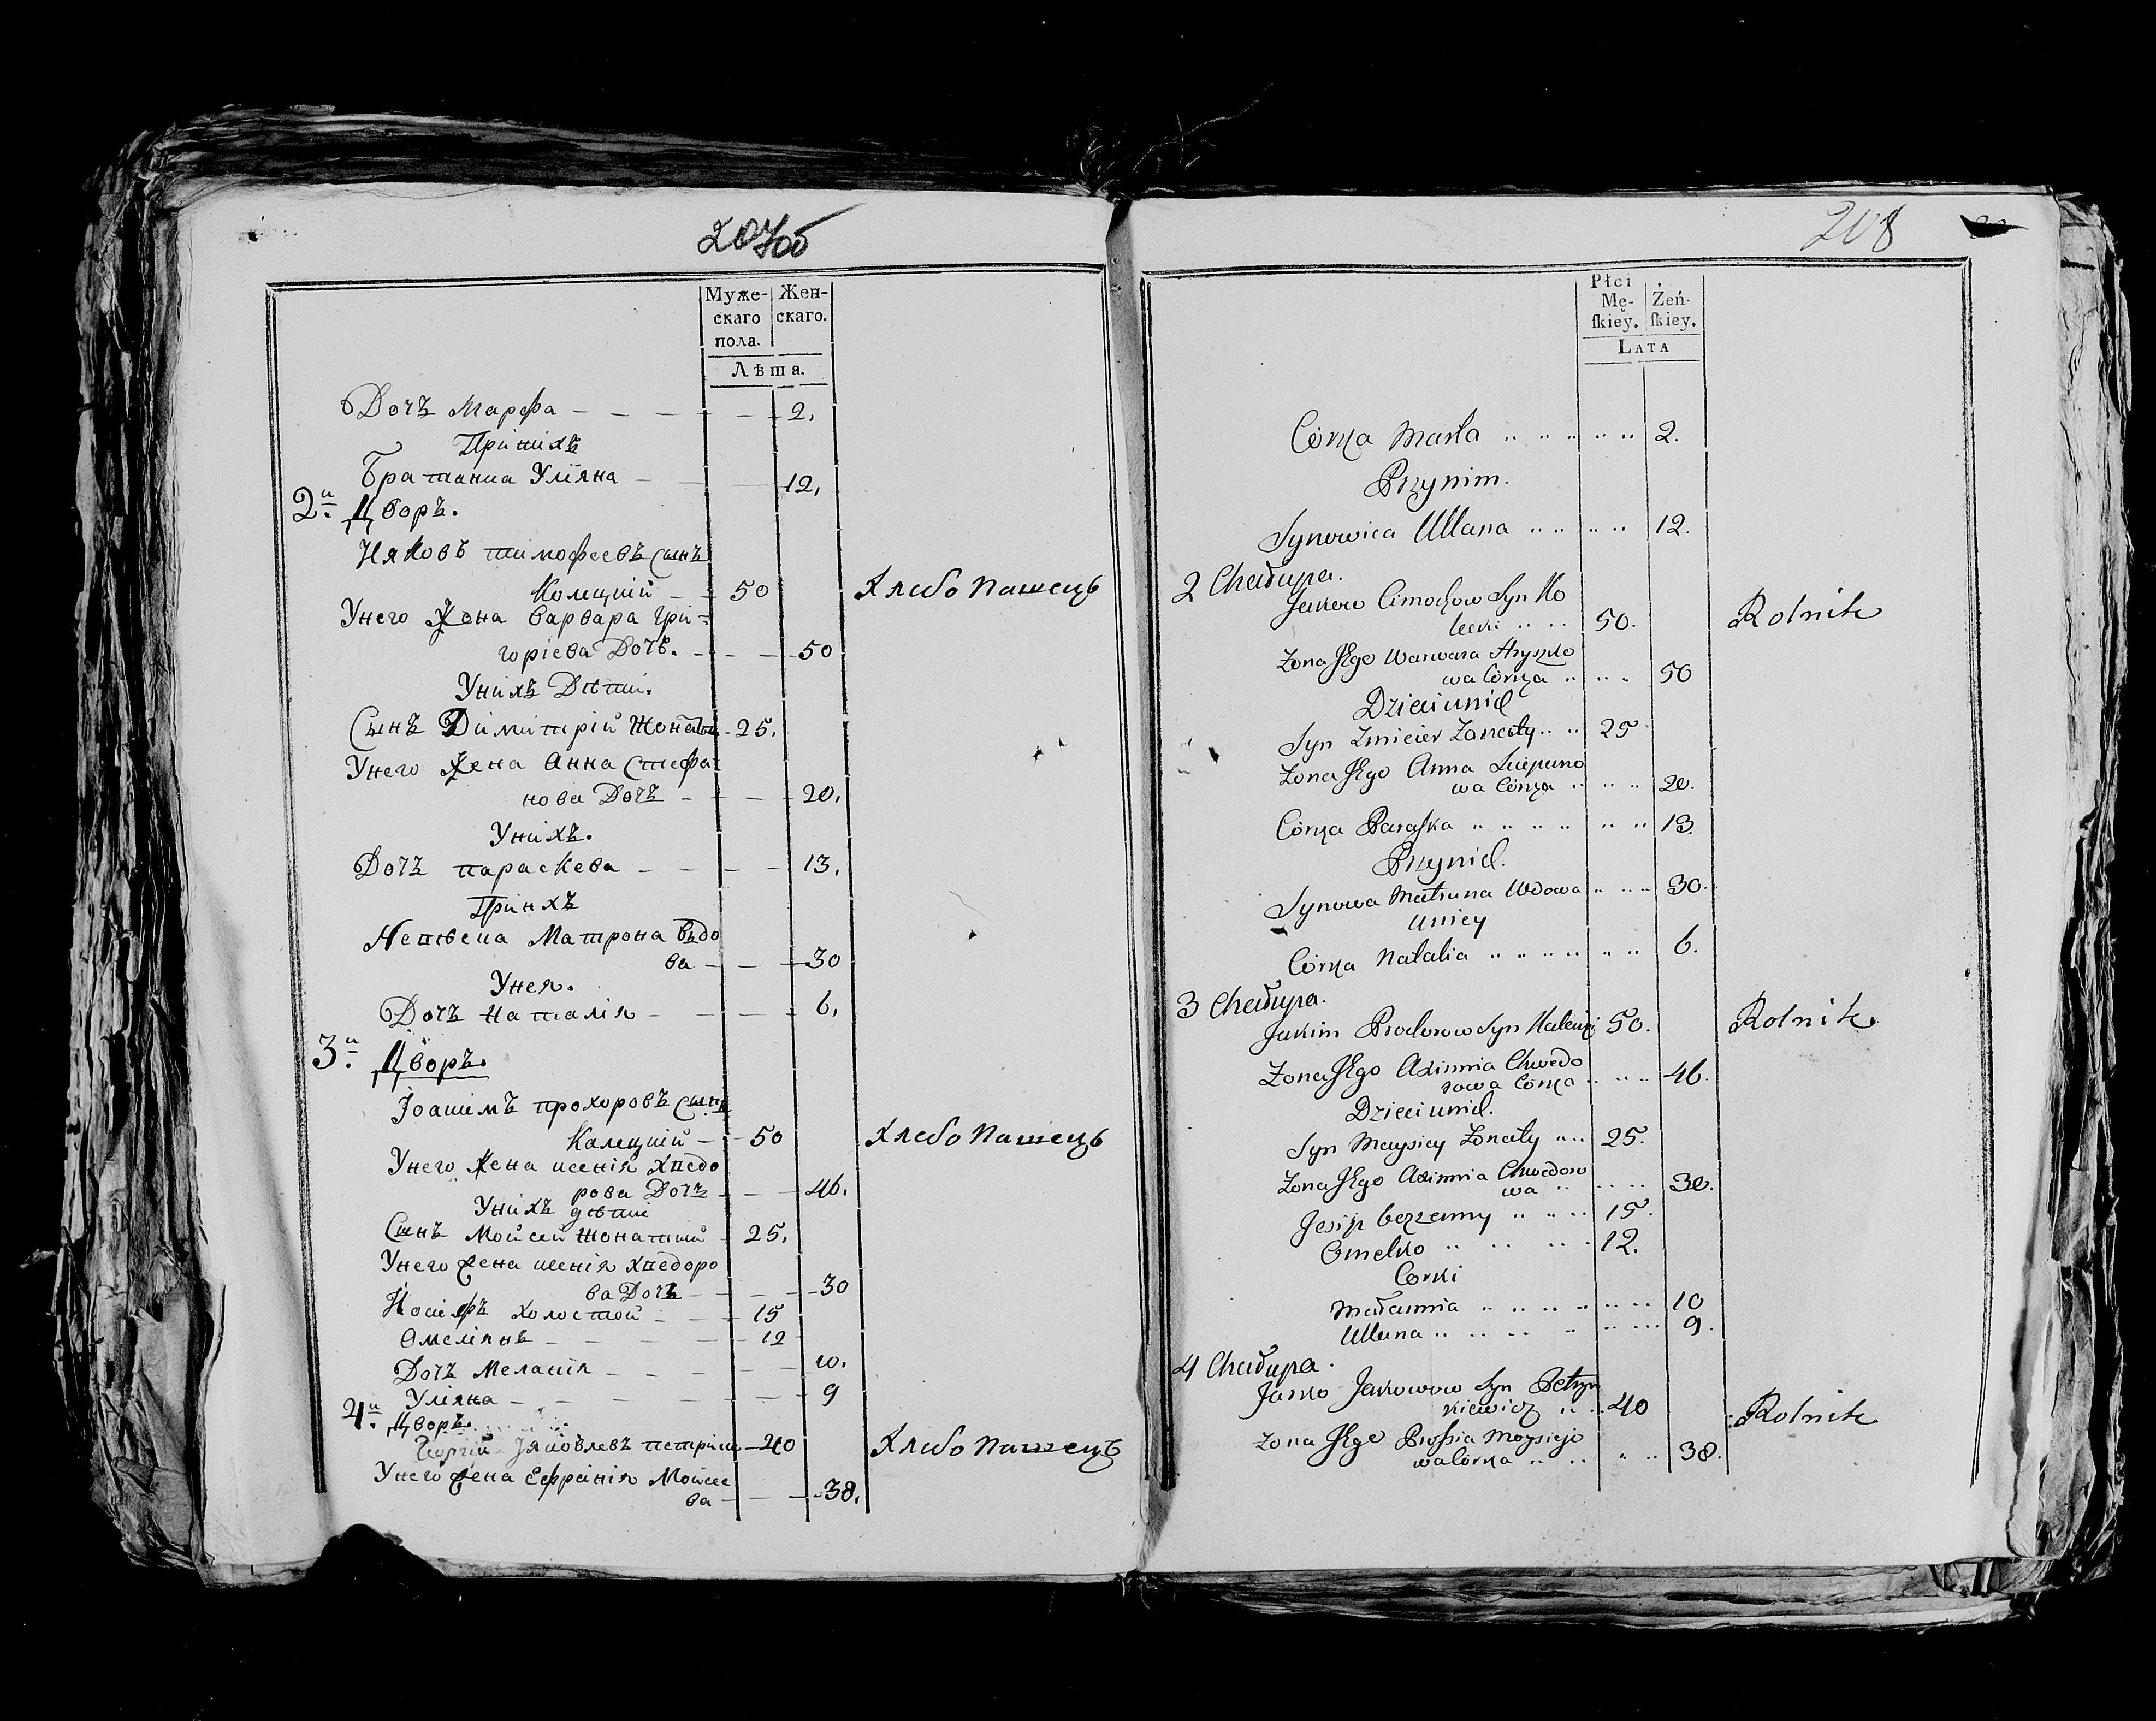 207об
Муже-
скаго
пола.
Жен-
скаго.
Лѣта.
Дочъ Марфа — — — — — 2,
Принихъ
Братаница Уліяна — — — 12,
2й Дворъ.
Ияковъ тимофеевъ сынъ
Колецкій — 50 Хлебо Пашець
Унего Жена Варвара Гри-
горіева Дочь. — — — 50
Унихъ Дѣти.
Сынъ Димитрій Жонатый 25.
Унего Жена Анна Стефа
нова Дочъ — — — 20,
Унихъ.
Дочъ параскева — — — — 13,
Принхъ
Невѣстка Матрона Вдо
ва — — — 30
Унея.
Дочъ Наталія — — — — 6,
3й Дворъ.
Іоакимъ прохоровъ сынъ
Калецкій — 50 Хлебо Пашець
Унего Жена ксенія Хведо
рова Дочъ — — — 46.
Унихъ дѣти
Сынъ Мойсей Жонатий 25,
Унего Жена ксенія Хведоро
ва Дочъ — — — 30
Иосифъ холостой — — 15
Омеліянъ — — — — 12
Дочъ Меланія — — — — 10.
Уліяна — — — — — 9
4й Дворъ.
Яковлевъ петрики 40 Хлебо Пашець
Унего Жена Ефранія Мойсее
ва — — — 38,
208
Płci
Mę-
skiey.
Żeń-
skiey.
LATA
Córka Marta .. .. .. .. .. 2.
Przynim.
Synowica Ullana .. .. .. .. 12.
2 Chałupa.
Jakow Cimochow Syn Ko
lecki .. .. 50. Rolnik
Zona Jego Warwara Hryszko
wa Córka .. .. .. 50
Dzieci unich
Syn Zmicier Zonaty .. .. 25
Zona Jego Anna Sciepano
wa Córka .. .. .. 20.
Córka Paraska .. .. .. .. .. .. 13
Przynich.
Synowa Matruna Wdowa .. .. .. 30.
Uniey
Córka Natalia .. .. .. .. .. .. 6.
3 Chałupa.
Jakim Prochorow Syn Kalecki 50. Rolnik
Zona Jego Axinnia Chwedo
rowa Córka .. .. .. 46.
Dzieci unich.
Syn Maysiey Zonaty .. .. 25.
Zona Jego Axinnia Chwedoro
wa .. .. .. 30.
Jesip bezzenny .. .. .. 15.
Omelko .. .. .. .. 12.
Corki
Małannia .. .. .. .. .. .. 10
Ullana .. .. .. .. .. .. 9.
4 Chałupa.
Jurko Jakowow Syn Petry
kiewicz .. .. 40 Rolnik
Zona Jego Prosia Moysieje
wa Córka .. .. .. .. 38.